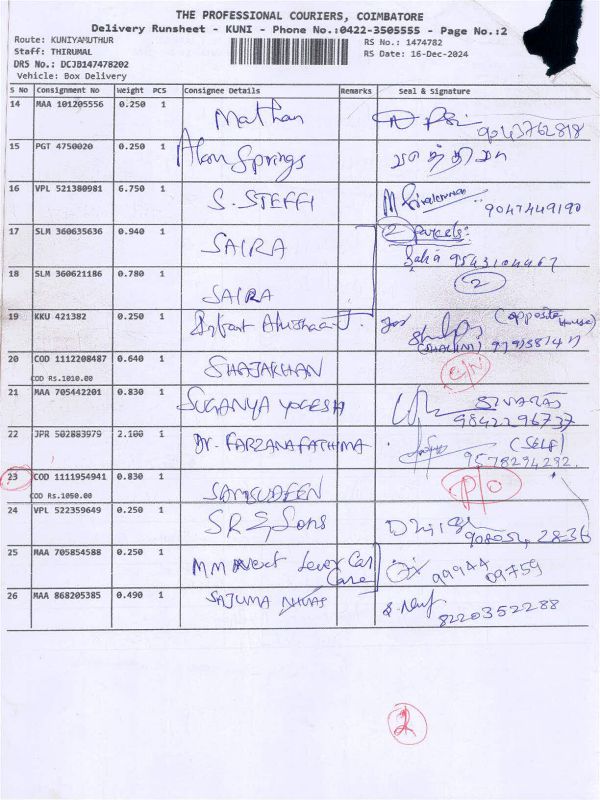 THE PROFESSIONAL COURIERS, COIMBATORE
Delivery Runsheet - KUNI - Phone No.:0422-3505555 - Page No.:2
Route: KUNIYAMUTHUR RS No.: 1474782
Staff: THIRUMAL RS Date: 16-Dec-2024
DRS No.: DCJB147478202
Vehicle: Box Delivery
S No Consignment No Weight PCS Consignee Details Remarks Seal & Signature
14 MAA 101205556 0.250 1 Mathan 9043762818
15 PGT 4750020 0.250 1 Alan Springs வசந்தியா
16 VPL 521380981 6.750 1 S. STEFFI 9047449190
17 SLM 360635636 0.940 1 SAIRA 2 Parcels:
9543104467
18 SLM 360621186 0.780 1 SAIRA 2
19 KKU 421382 0.250 1 (opposite House)
(SHALINI)
20 COD 1112208487 0.640 1 SHAJAKHAN C/N
COD Rs.1010.00
21 MAA 705442201 0.830 1 SUGANYA YOGESH SIVARAJ
9842296737
22 JPR 502883979 2.100 1 Dr. FARZANA FATHIMA (SELF)
9578294292
23 COD 1111954941 0.830 1 SAMSUDEEN P/O
COD Rs.1050.00
24 VPL 522359649 0.250 1 SRS, Sons
25 MAA 705854588 0.250 1 MM Next Level Car Care 99944 09759
26 MAA 868205385 0.490 1 SAJUMA NIHAS 8220352288
2